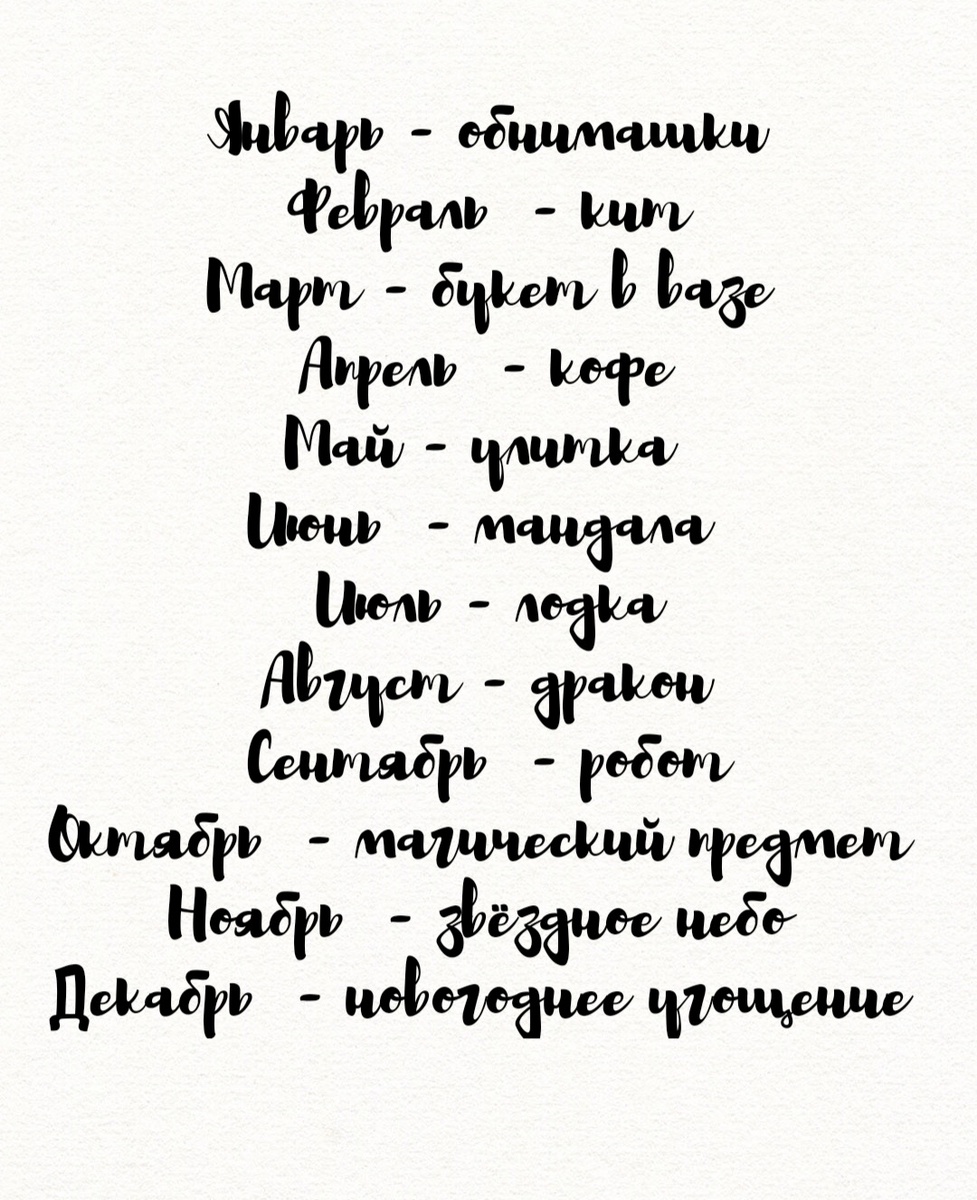 Январь - обнимашки
Февраль - кит
Март - букет в вазе
Апрель - кофе
Май - улитка
Июнь - мандала
Июль - лодка
Август - дракон
Сентябрь - робот
Октябрь - магический предмет
Ноябрь - звёздное небо
Декабрь - новогоднее угощение